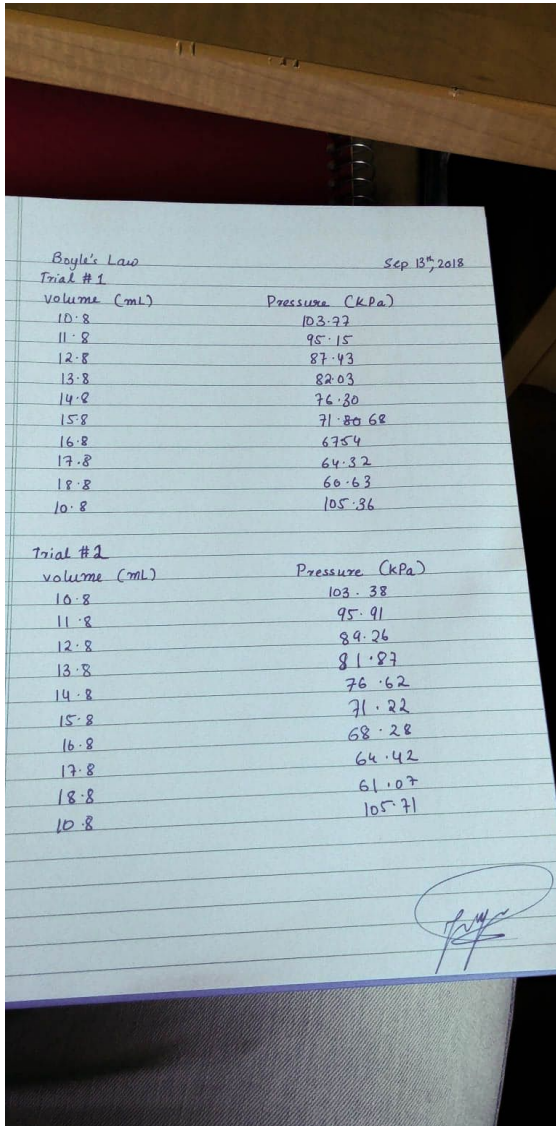 Boyle's Law Sep 13th, 2018
Trial #1
volume (mL) Pressure (kPa)
10.8 103.77
11.8 95.15
12.8 87.43
13.8 82.03
14.8 76.30
15.8 71.80 68
16.8 6754
17.8 64.32
18.8 60.63
10.8 105.36
Trial #2
volume (mL) Pressure (kPa)
10.8 103.38
11.8 95.91
12.8 89.26
13.8 81.87
14.8 76.62
15.8 71.22
16.8 68.28
17.8 64.42
18.8 61.07
10.8 105.71